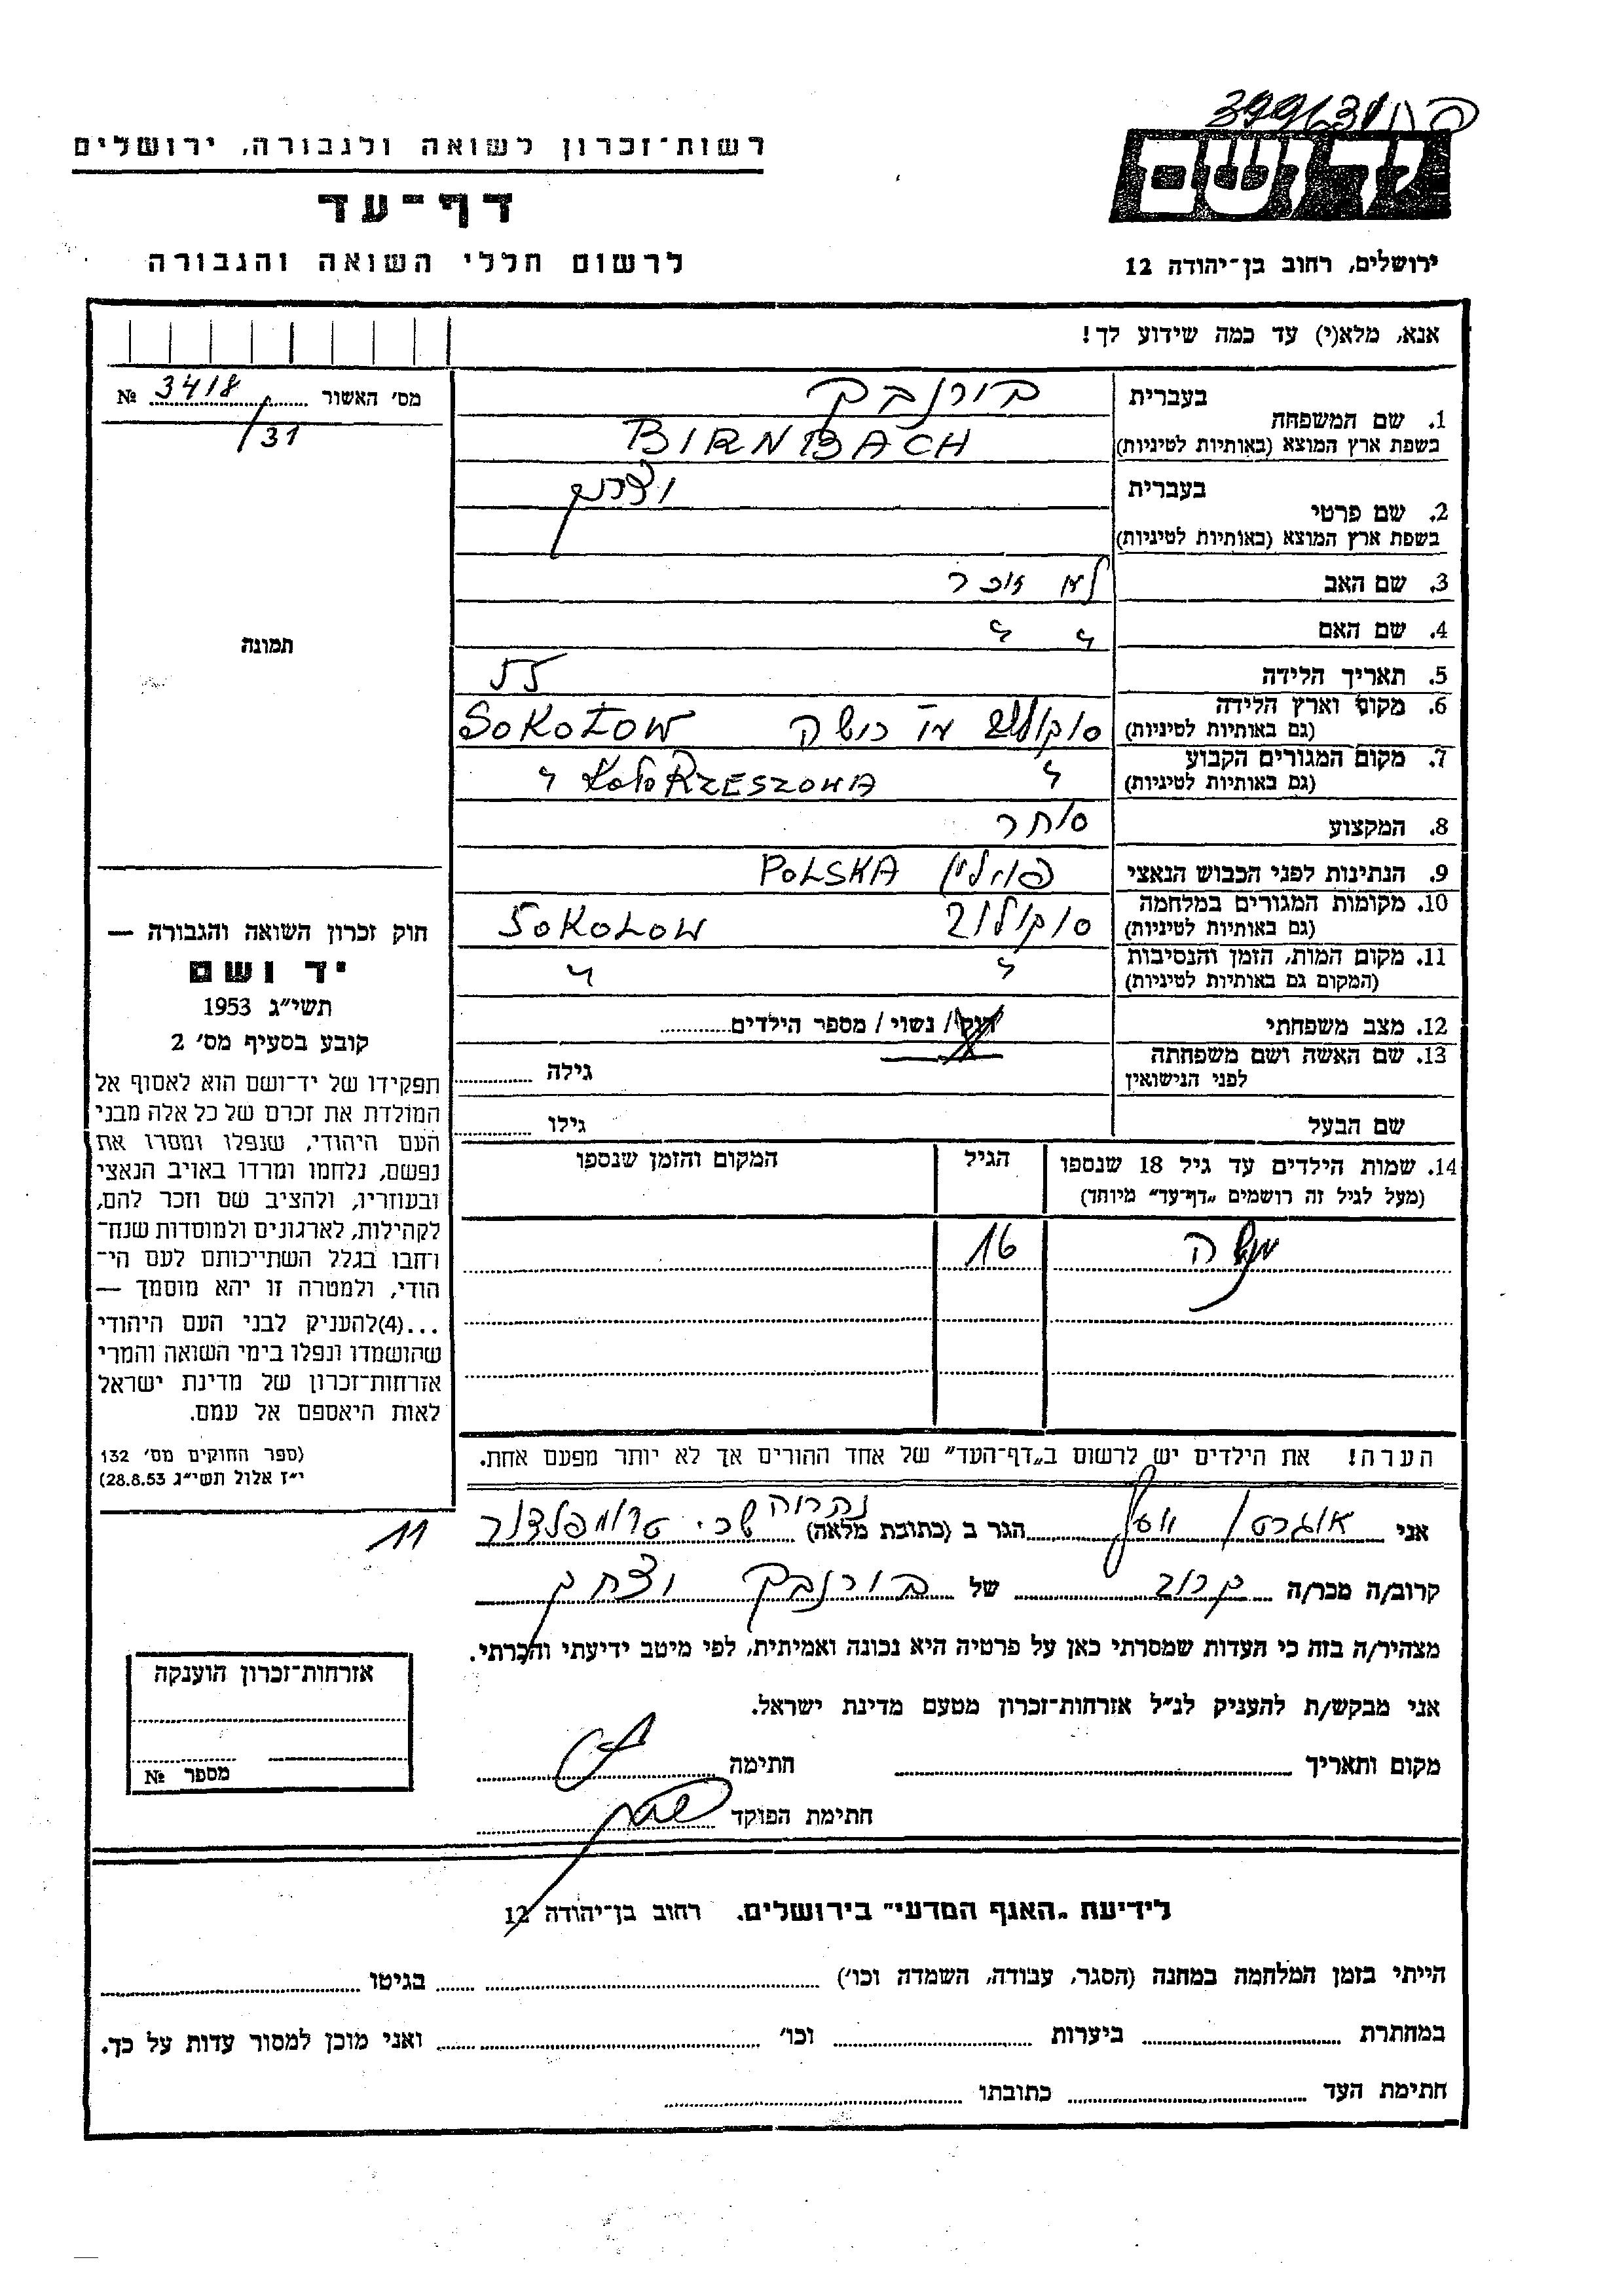 399631
יד ושם
רשות־זכרון לשואה ולגבורה, ירושלים
דף־עד
לרשום חללי השואה והגבורה
ירושלים, רחוב בן־יהודה 12
אנא, מלא(י) עד כמה שידוע לך!
מס׳ האשור 3418 №
/31
1. שם המשפחה
בעברית בירנבך
בשפת ארץ המוצא (באותיות לטיניות) BIRNBACH
2. שם פרטי
בעברית יצחק
בשפת ארץ המוצא (באותיות לטיניות)
3. שם האב לא זוכר
4. שם האם " "
5. תאריך הלידה 55
6. מקום וארץ הלידה
(גם באותיות לטיניות) סוקולוב SOKOŁOW
7. מקום המגורים הקבוע
(גם באותיות לטיניות) " Koło RZESZOWA "
8. המקצוע סוחר
9. הנתינות לפני הכבוש הנאצי פולין POLSKA
10. מקומות המגורים במלחמה
(גם באותיות לטיניות) סוקולוב SOKOLOW
11. מקום המות, הזמן והנסיבות
(המקום גם באותיות לטיניות) " "
12. מצב משפחתי רווק / נשוי / מספר הילדים
13. שם האשה ושם משפחתה
לפני הנישואין גילה
שם הבעל גילו
14. שמות הילדים עד גיל 18 שנספו הגיל המקום והזמן שנספו
(מעל לגיל זה רושמים „דף־עד״ מיוחד)
משה 16
הערה! את הילדים יש לרשום ב„דף־העד״ של אחד ההורים אך לא יותר מפעם אחת.
תמונה
חוק זכרון השואה והגבורה —
יד ושם
תשי״ג 1953
קובע בסעיף מס׳ 2
תפקידו של יד־ושם הוא לאסוף אל
המולדת את זכרם של כל אלה מבני
העם היהודי, שנפלו ומסרו את
נפשם, נלחמו ומרדו באויב הנאצי
ובעוזריו, ולהציב שם וזכר להם,
לקהילות, לארגונים ולמוסדות שנח־
רחבו בגלל השתייכותם לעם הי־
הודי, ולמטרה זו יהא מוסמך —
...(4)להעניק לבני העם היהודי
שהושמדו ונפלו בימי השואה והמרי
אזרחות־זכרון של מדינת ישראל
לאות היאספם אל עמם.
(ספר החוקים מס׳ 132
י״ז אלול תשי״ג 28.8.53)
אני הגר ב (כתובת מלאה) נהריה שכ׳ טרומפלדור
11
קרוב/ה מכר/ה קרוב של בירנבך יצחק
מצהיר/ה בזה כי העדות שמסרתי כאן על פרטיה היא נכונה ואמיתית, לפי מיטב ידיעתי והכרתי.
אני מבקש/ת להעניק לנ״ל אזרחות־זכרון מטעם מדינת ישראל.
מקום ותאריך חתימה
חתימת הפוקד
אזרחות־זכרון הוענקה
מספר №
לידיעת „האגף המדעי״ בירושלים. רחוב בן־יהודה 12
הייתי בזמן המלחמה במחנה (הסגר, עבודה, השמדה וכו׳) בגיטו
במחתרת ביערות וכו׳ ואני מוכן למסור עדות על כך.
חתימת העד כתובתו